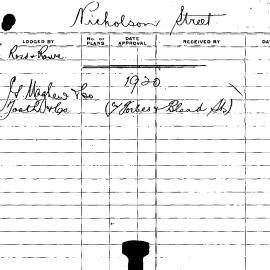 Nicholson Street
LODGED BY No. OF PLANS DATE APPROVAL RECEIVED BY DA
Ross & Rowe
1920
J. S. Mayhew & Co
Tooth & Co (& Forbes & Bland Sts)